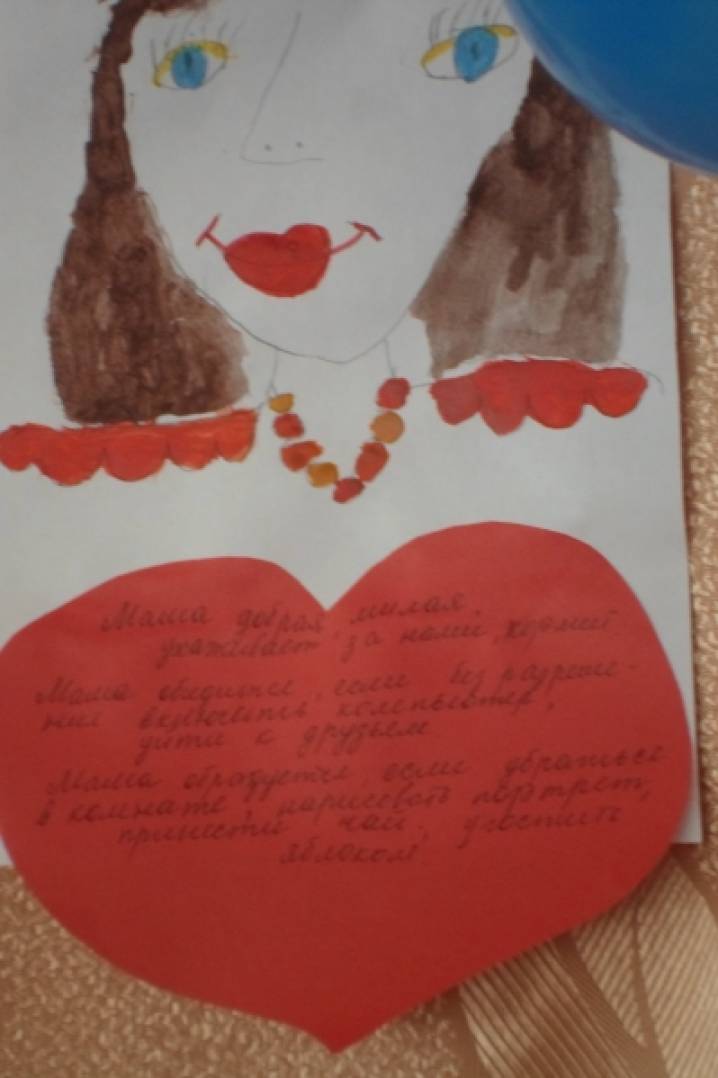 Мама добрая, милая,
ухаживает за нами, кормит
Мама обидится, если без разреше-
ния включить компьютер,
уйти к друзьям
Мама обрадуется, если убраться
в комнате, нарисовать портрет,
принести чай, угостить
яблоком